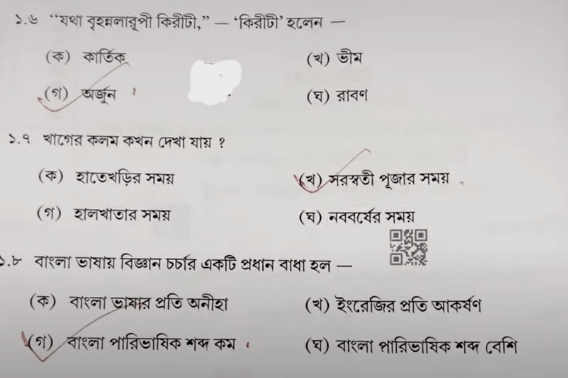 ১.৬ “যথা বৃহন্নলারূপী কিরীটী,” — ‘কিরীটী’ হলেন —
(ক) কার্তিক (খ) ভীম
(গ) অর্জুন (ঘ) রাবণ
১.৭ খাগের কলম কখন দেখা যায় ?
(ক) হাতেখড়ির সময় (খ) সরস্বতী পূজার সময়
(গ) হালখাতার সময় (ঘ) নববর্ষের সময়
১.৮ বাংলা ভাষায় বিজ্ঞান চর্চার একটি প্রধান বাধা হল —
(ক) বাংলা ভাষার প্রতি অনীহা (খ) ইংরেজির প্রতি আকর্ষণ
(গ) বাংলা পারিভাষিক শব্দ কম (ঘ) বাংলা পারিভাষিক শব্দ বেশি